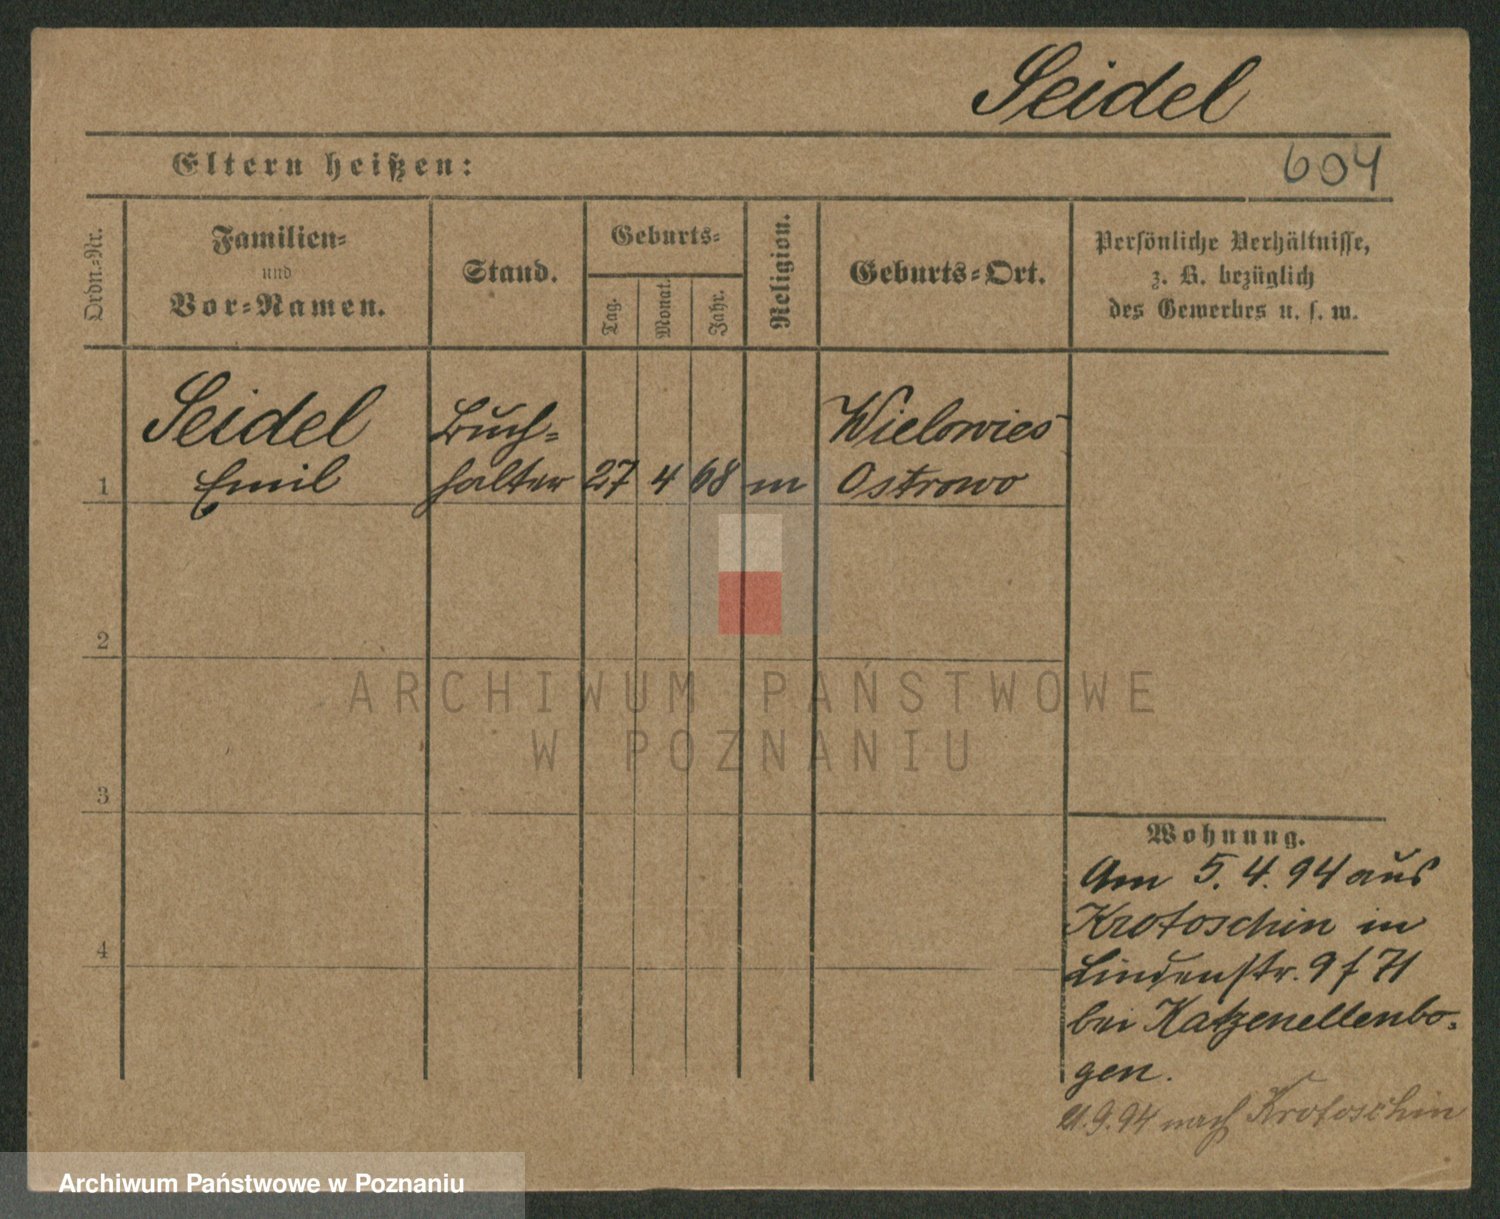 Seidel
Eltern heißen:
604
Ordn.-Nr.
Familien-
und
Vor-Namen.
Stand.
Geburts-
Tag.
Monat.
Jahr.
Religion.
Geburts-Ort.
Persönliche Verhältnisse,
z. B. bezüglich
des Gewerbes u. s. w.
Seidel
Emil
Buch-
halter
27 4 68 m
Wielowies
Ostrowo
1
2
3
4
ARCHIWUM PAŃSTWOWE
W POZNANIU
Wohnung.
Am 5. 4. 94 aus
Krotoschin in
Lindenstr. 9 f 71
bei Katzenellenbo-
gen.
21.9.94 nach Krotoschin
Archiwum Państwowe w Poznaniu